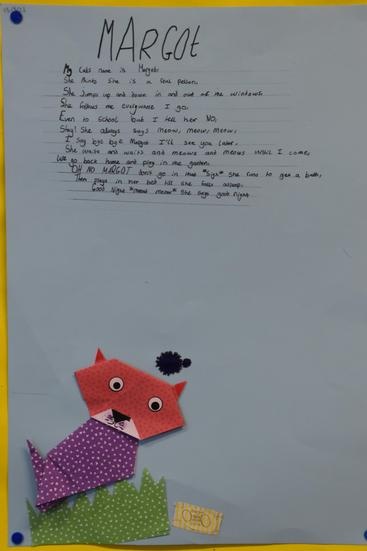 MARGOt
My Cats name is Margot.
She thinks She is a real person.
She Jumps up and down in and out of the windows.
She follows me everywhere I go.
Even to School but I tell her NO,
Stay! She always says meow, meow, meow,
I Say bye bye Margot I'll see you later.
She waits and waits and meows and meows until I come,
We go back home and play in the garden.
OH NO MARGOT don't go in that *Sigh* She runs to get a bath,
Then plays in her bed till she falls asleep.
Good Night *meow meow* She says good night.